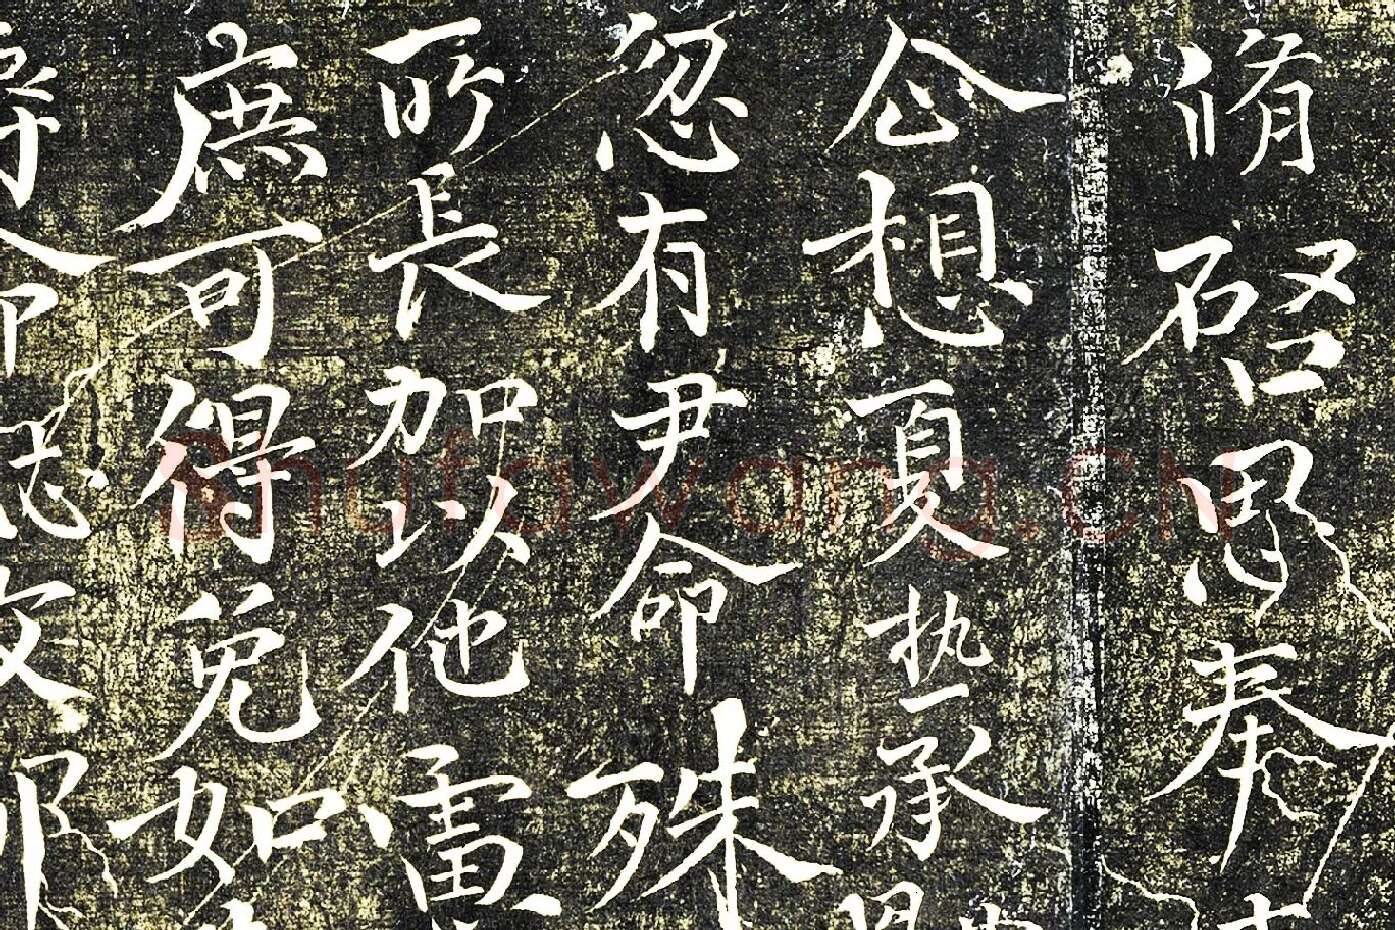 脩啓思奉
企想夏热承
忽有尹命殊
所長加以他
庶可得免如
Shufawang.CN